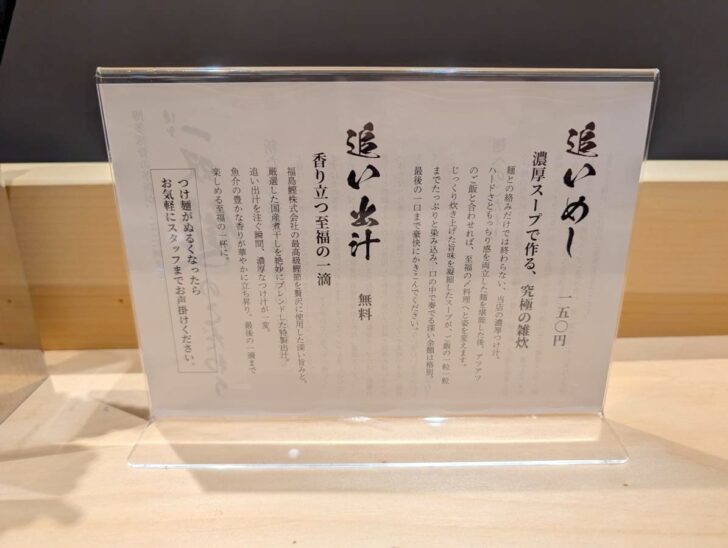 追いめし 一五〇円
濃厚スープで作る、究極の雑炊
麺との絡みだけでは終わらない、当店の濃厚つけ汁。
ハードさともっちり感を両立した麺を堪能した後、アツアツ
のご飯と合わせれば、至福の〆料理へと姿を変えます。
じっくり炊き上げた旨味を凝縮したスープが、ご飯の一粒一粒
までたっぷりと染み込み、口の中で奏でる深い余韻は格別。
最後の一口まで豪快にかきこんでください！
追い出汁 無料
香り立つ至福の一滴
福島鰹株式会社の最高級鰹節を贅沢に使用した深い旨みと、
厳選した国産煮干しを絶妙にブレンドした特製出汁。
追い出汁を注ぐ瞬間、濃厚なつけ汁が一変。
魚介の豊かな香りが華やかに立ち昇り、最後の一滴まで
楽しめる至福の一杯に。
つけ麺がぬるくなったら
お気軽にスタッフまでお声掛けください。